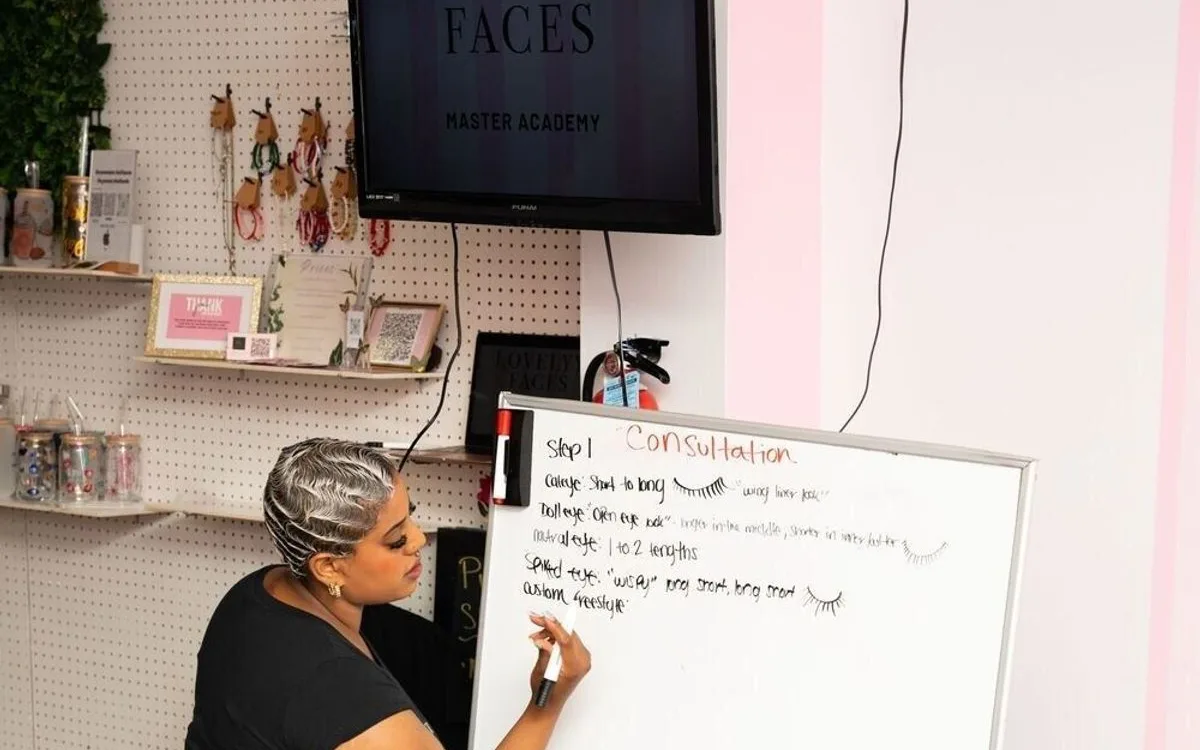 FACES
MASTER ACADEMY
FUNAI
THANK
Prices
LOVELY
FACES
Step 1 Consultation
Cateye: Short to long "wing liner look"
Dolleye: "Open eye look" - longer in the middle, shorter in inner/outter
natural eye: 1 to 2 lengths
Spiked eye: "wispy" long short, long short
custom freestyle: